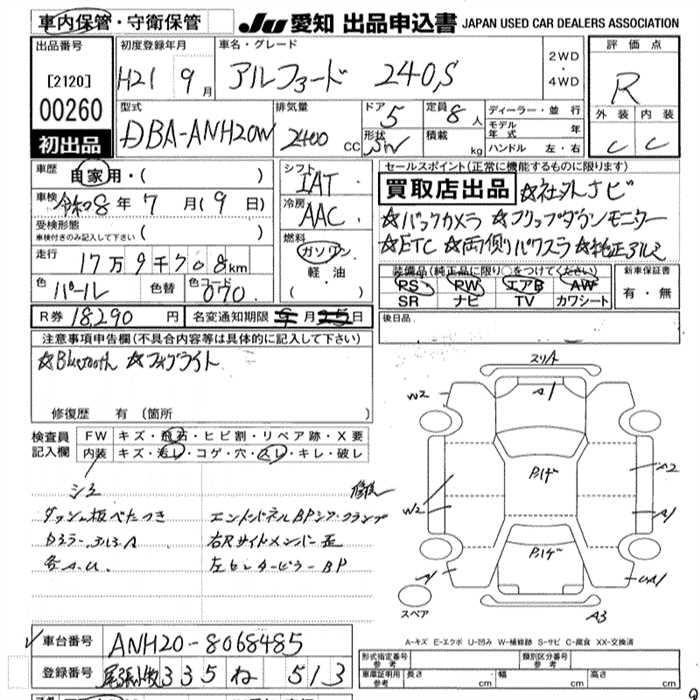 車内保管・守衛保管
JU 愛知 出品申込書 JAPAN USED CAR DEALERS ASSOCIATION
出品番号
[2120]
00260
初出品
初度登録年月
H21 9月
車名・グレード
アルファード 240S
2WD
・
4WD
評価点
R
外装 内装
C C
型式
DBA-ANH20W
排気量
2400 CC
ドア 5
形状 SW
定員 8人
積載 kg
ディーラー・並行
モデル年式 年
ハンドル 左・右
車歴 自家用・( )
車検 令和8年7月(9日)
受検形態
車検付きのみ記入して下さい ( )
走行 17万9千708km
色 パール 色替 色コード 070
シフト
IAT
冷房
AAC
燃料
ガソリン
軽油
・( )
セールスポイント(正常に機能するものに限ります)
買取店出品 ☆社外ナビ
☆バックカメラ ☆フリップダウンモニター
☆ETC ☆両側パワスラ ☆純正アルミ
装備品(純正品に限り○をつけてください)
PS PW エアB AW
SR ナビ TV カワシート
新車保証書
有・無
R券 18290 円 名変通知期限 月 日
後日品
注意事項申告欄(不具合内容等は具体的に記入して下さい)
☆Bluetooth ☆フォグライト
修復歴 有 (箇所
検査員記入欄
FW キズ・飛石・ヒビ割・リペア跡・X要
内装 キズ・汚レ・コゲ・穴・スレ・キレ・破レ
シミ 修復
ダッシュ板べたつき エンドパネルBP
右Rサイドメンバー歪
各A.U. 左センターピラーBP
スリキズ
W2 A1
Pルーフ
A2
W2 A1
Pルーフ
A1 UA1
スペア A3
A-キズ E-エクボ U-凹み W-補修跡 S-サビ C-腐食 XX-交換済
車台番号 ANH20-8068485
登録番号 尾張小牧 335 ね 513
形式指定番号 参考 類別区分番号 参考
車庫証明用 参考 長さ cm 幅 cm 高さ cm